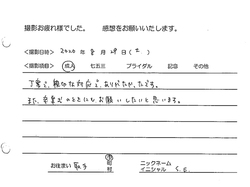 撮影お疲れ様でした。 感想をお願いいたします。
<撮影日時> 2020年 8月 29日(土)
<撮影項目> 成人 七五三 ブライダル 記念 その他
丁寧で、親切な対応で、ありがたかったです。
また、卒業式のときにもお願いしたいと思います。
お住まい 市 町 村
ニックネーム
イニシャル